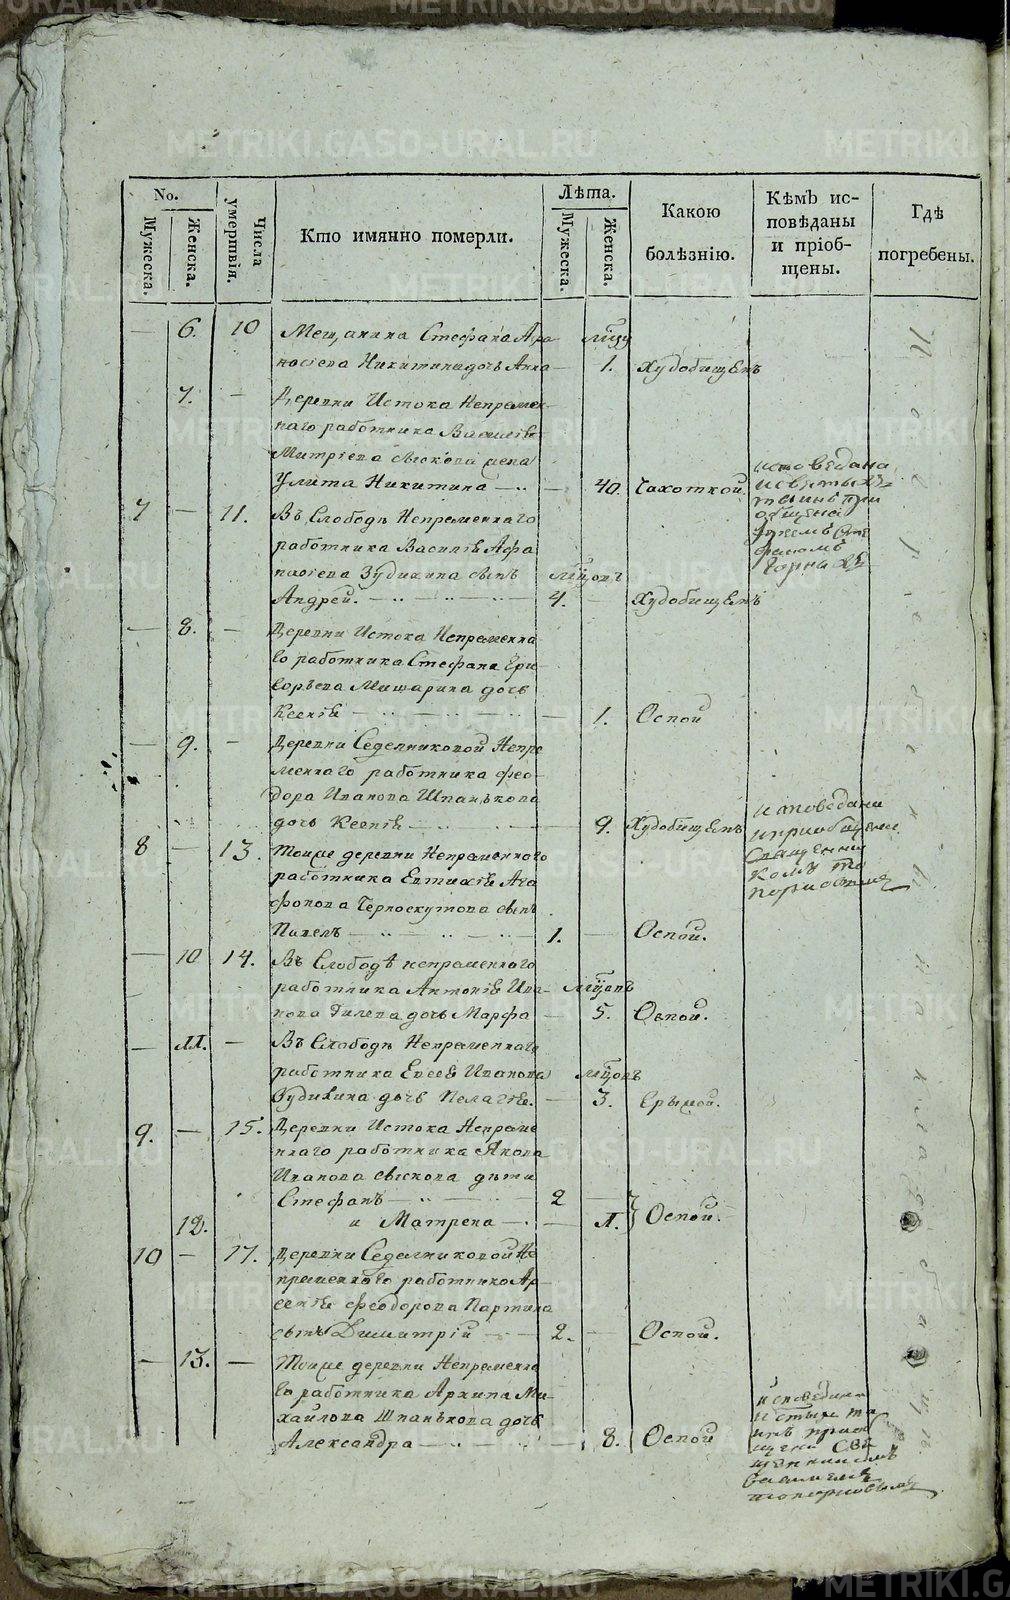 No.
Мужеска.
Женска.
Числа умершвія.
Кто имянно померли.
Лѣта.
Мужеска.
Женска.
Какою болѣзнію.
Кѣмъ ис-
повѣданы
и пріоб-
щены.
Гдѣ
погребены.
— 6. 10 Мещанина Стефана Афа
насіева Никитина дочь Анна — 1. Худобищемъ
7. — Деревни Истока Непремен-
наго работника Василіе
Митріева жена
Улита Никитина — 40. Чахоткой.
исповедана
7 — 11. Въ Слободѣ Непременнаго
работника Василіе Афа
насіева Зудихина сынъ
Андрей. — 4. — Худобищемъ
— 8. — Деревни Истока Непременна
го работника Стефана Гри
горьева Мишарина дочь
Ксеніе — 1. Оспой
— 9. — Деревни Седелниковой Непре
меннаго работника Фео-
дора Иванова Шпанькова
дочь Ксеніе — 9. Худобищемъ
исповедана
и приобщена
Священни
комъ
8 — 13. Тоиже деревни Непременнаго
работника Евтихіе Ага
фонова Черноскутова сынъ
Павелъ — 1. — Оспой.
— 10 14. Въ Слободѣ непременнаго
работника Антоніе Ива-
нова Гилева дочь Марфа — 5. Оспой.
— 11. — Въ Слободѣ Непременнаго
работника Евсее Иванова
Зудихина дочь Пелагіе. — 3. Грыжой.
9. — 15. Деревни Истока Непреме
ннаго работника Якова
Иванова дѣти
Стефанъ — 2
12. и Матрена — 1. Оспой.
10 — 17. Деревни Седелниковой Не
пременнаго работника Ар-
сеніе Феодорова Партина
сынъ Димитрій — 2. — Оспой.
— 13. — Тоиже деревни Непременна
го работника Архипа Ми-
хайлова Шпанькова дочь
Александра — 8. Оспой
исповедана
METRIKI.GASO-URAL.RU